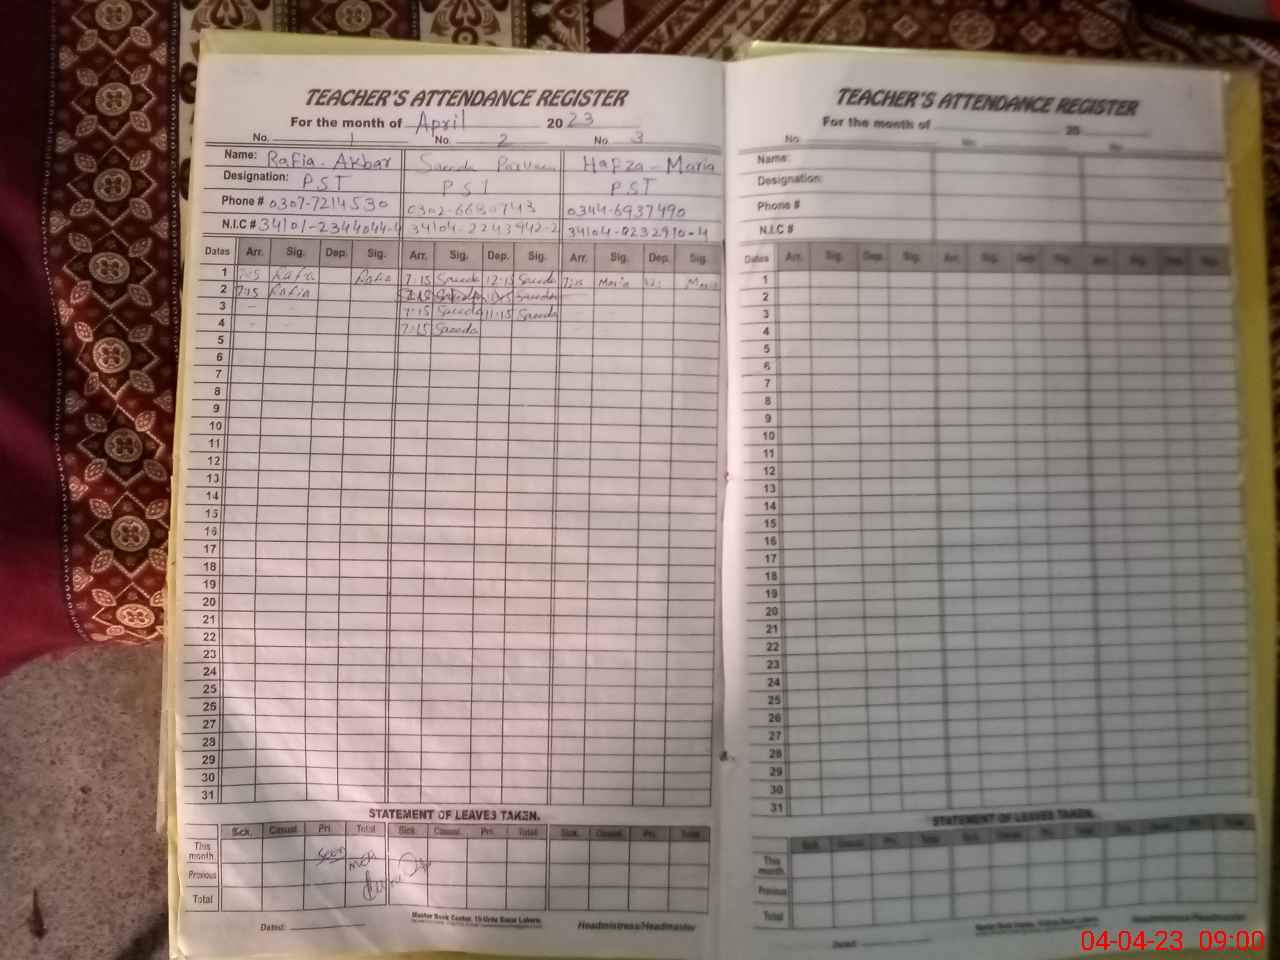 TEACHER'S ATTENDANCE REGISTER
For the month of April 2023
No. 1 No. 2 No. 3
Name: Rafia. Akbar Saeeda Parveen Hafza - Maria
Designation: PST PST PST
Phone # 0307-7214530 0344-6937490
N.I.C # 34101-2344044-4 34104-2243942-2 34104-0232910-4
Dates Arr. Sig. Dep. Sig. Arr. Sig. Dep. Sig. Arr. Sig. Dep. Sig.
1 7:15 Rafia Rafia 7:15 Saeeda 12:15 Saeeda 7:15 Maria 12: Maria
2 7:15 Rafia
3 7:15 Saeeda 11:15 Saeeda
4 7:15 Saeeda
5
6
7
8
9
10
11
12
13
14
15
16
17
18
19
20
21
22
23
24
25
26
27
28
29
30
31
STATEMENT OF LEAVES TAKEN.
Sick. Casual. Pri. Total Sick. Casual. Pri. Total Sick. Casual. Pri. Total
This month.
Previous
Total
Dated:
Master Book Center, 15-Urdu Bazar Lahore.
Headmistress/Headmaster
TEACHER'S ATTENDANCE REGISTER
For the month of 20
No. No. No.
Name:
Designation:
Phone #
N.I.C #
Dates Arr. Sig. Dep. Sig. Arr. Sig. Dep. Sig. Arr. Sig. Dep. Sig.
1
2
3
4
5
6
7
8
9
10
11
12
13
14
15
16
17
18
19
20
21
22
23
24
25
26
27
28
29
30
31
STATEMENT OF LEAVES TAKEN.
This month.
Previous
Total
Dated:
04-04-23 09:00